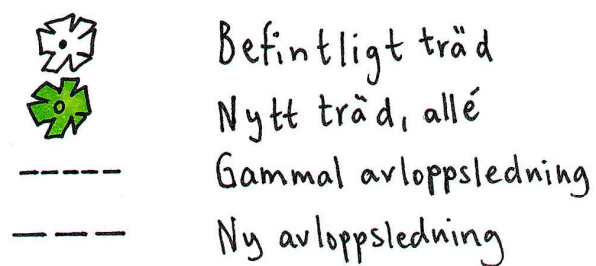 Befintligt träd
Nytt träd, allé
Gammal avloppsledning
Ny avloppsledning